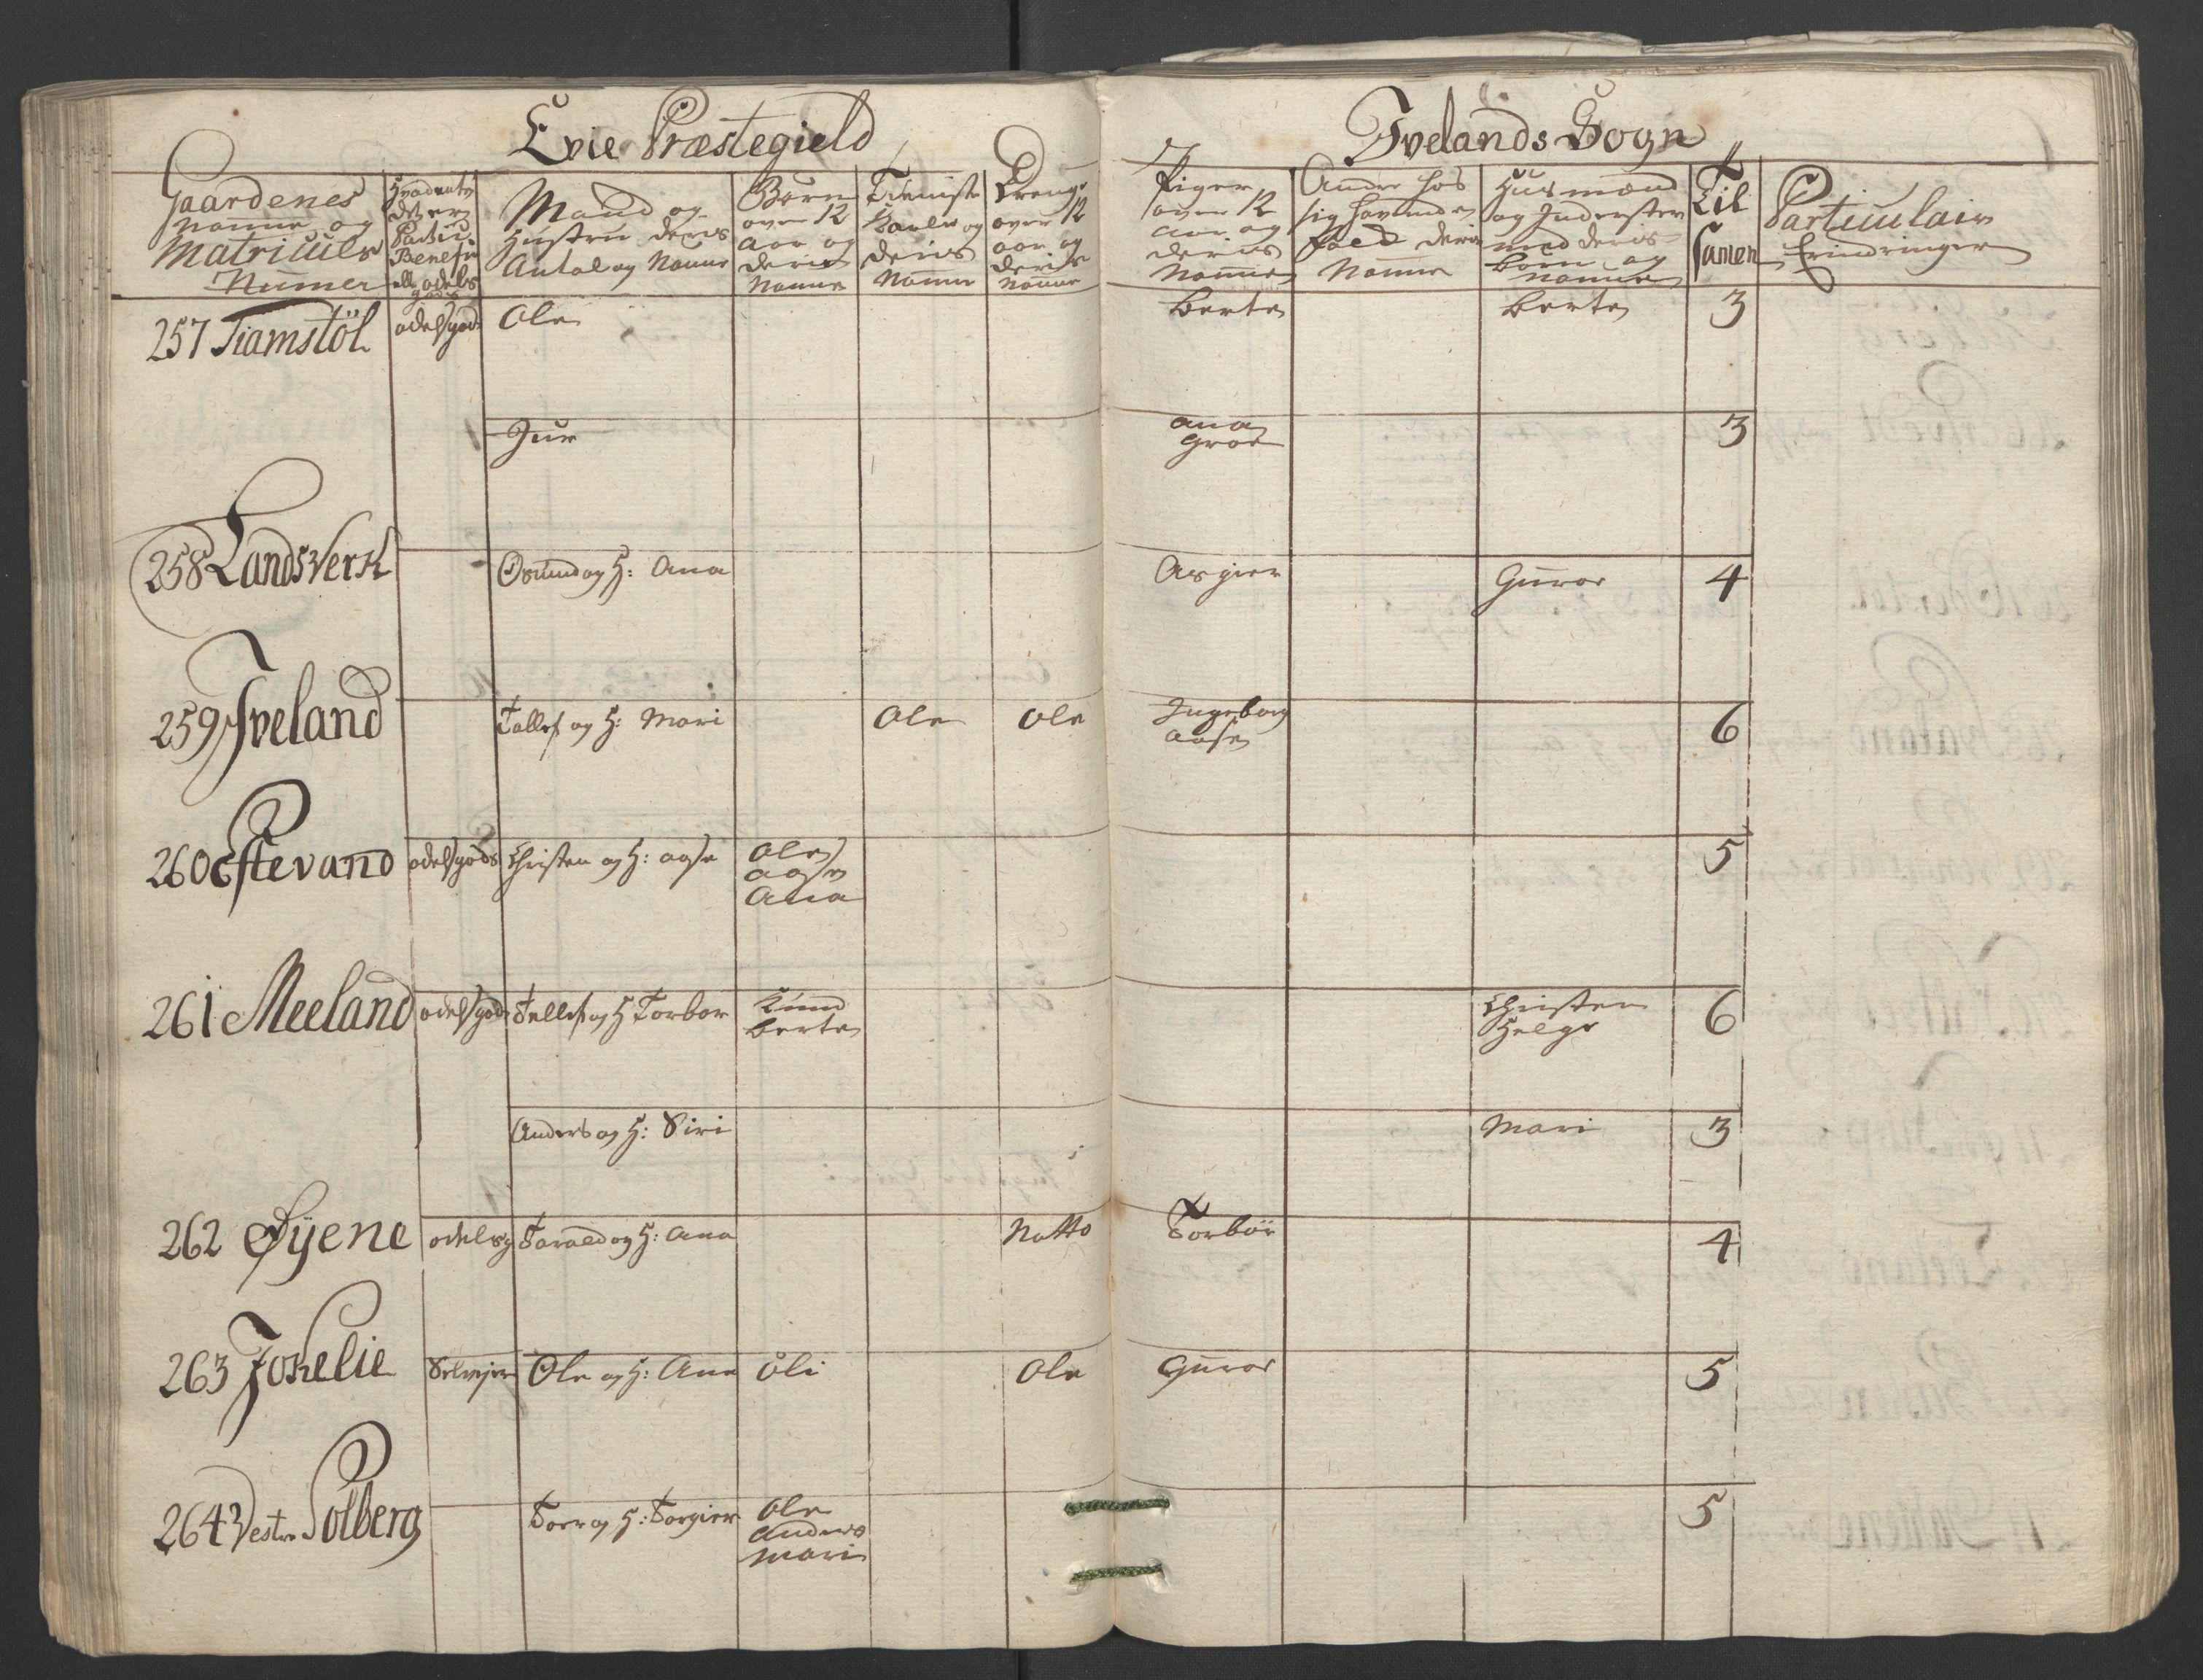 Evie Præstegield
Ivelands Sogn
Gaardenes
Nafne og
Matriculs
Numer
Hvad
det er
Benefic
odels
gods
Mand og
Hustru deris
Antal og Nafne
Børn
over 12
aar og
deris
Nafne
Tieniste
Karle og
deris
Nafne
Drenge
over 12
aar og
deris
Nafne
Piger
over 12
aar og
deris
Nafne
Andre hos
sig havende
foed deris
Nafne
Husmænd
og Inderster
med deris
børn og
Nafne
Til
samen
Particulair
Erindringer
257 Tiamstöl odelsgods Ole Berte Berte 3
Jur Ana 3
Groe
258 Landsverk Osmund og H: Ana Asgier Guroe 4
259 Iveland Tallef og H: Mari Ole Ole Ingeborg 6
Aase
260 Eftevand odelsgods Christen og H: Aase Ole 5
Aase
Ana
261 Meeland odelsgods Tellef og H Torbor Knud Christen 6
Berte Helge
Anders og H: Siri Mari 3
262 Øyene odelsg Tarald og H: Ana Natto Torbör 4
263 Jokelie Selvejer Ole og H: Ana Oli Ole Guroe 5
264 Vestre Solberg Toer og H: Torgier Ole 5
Anders
Mari